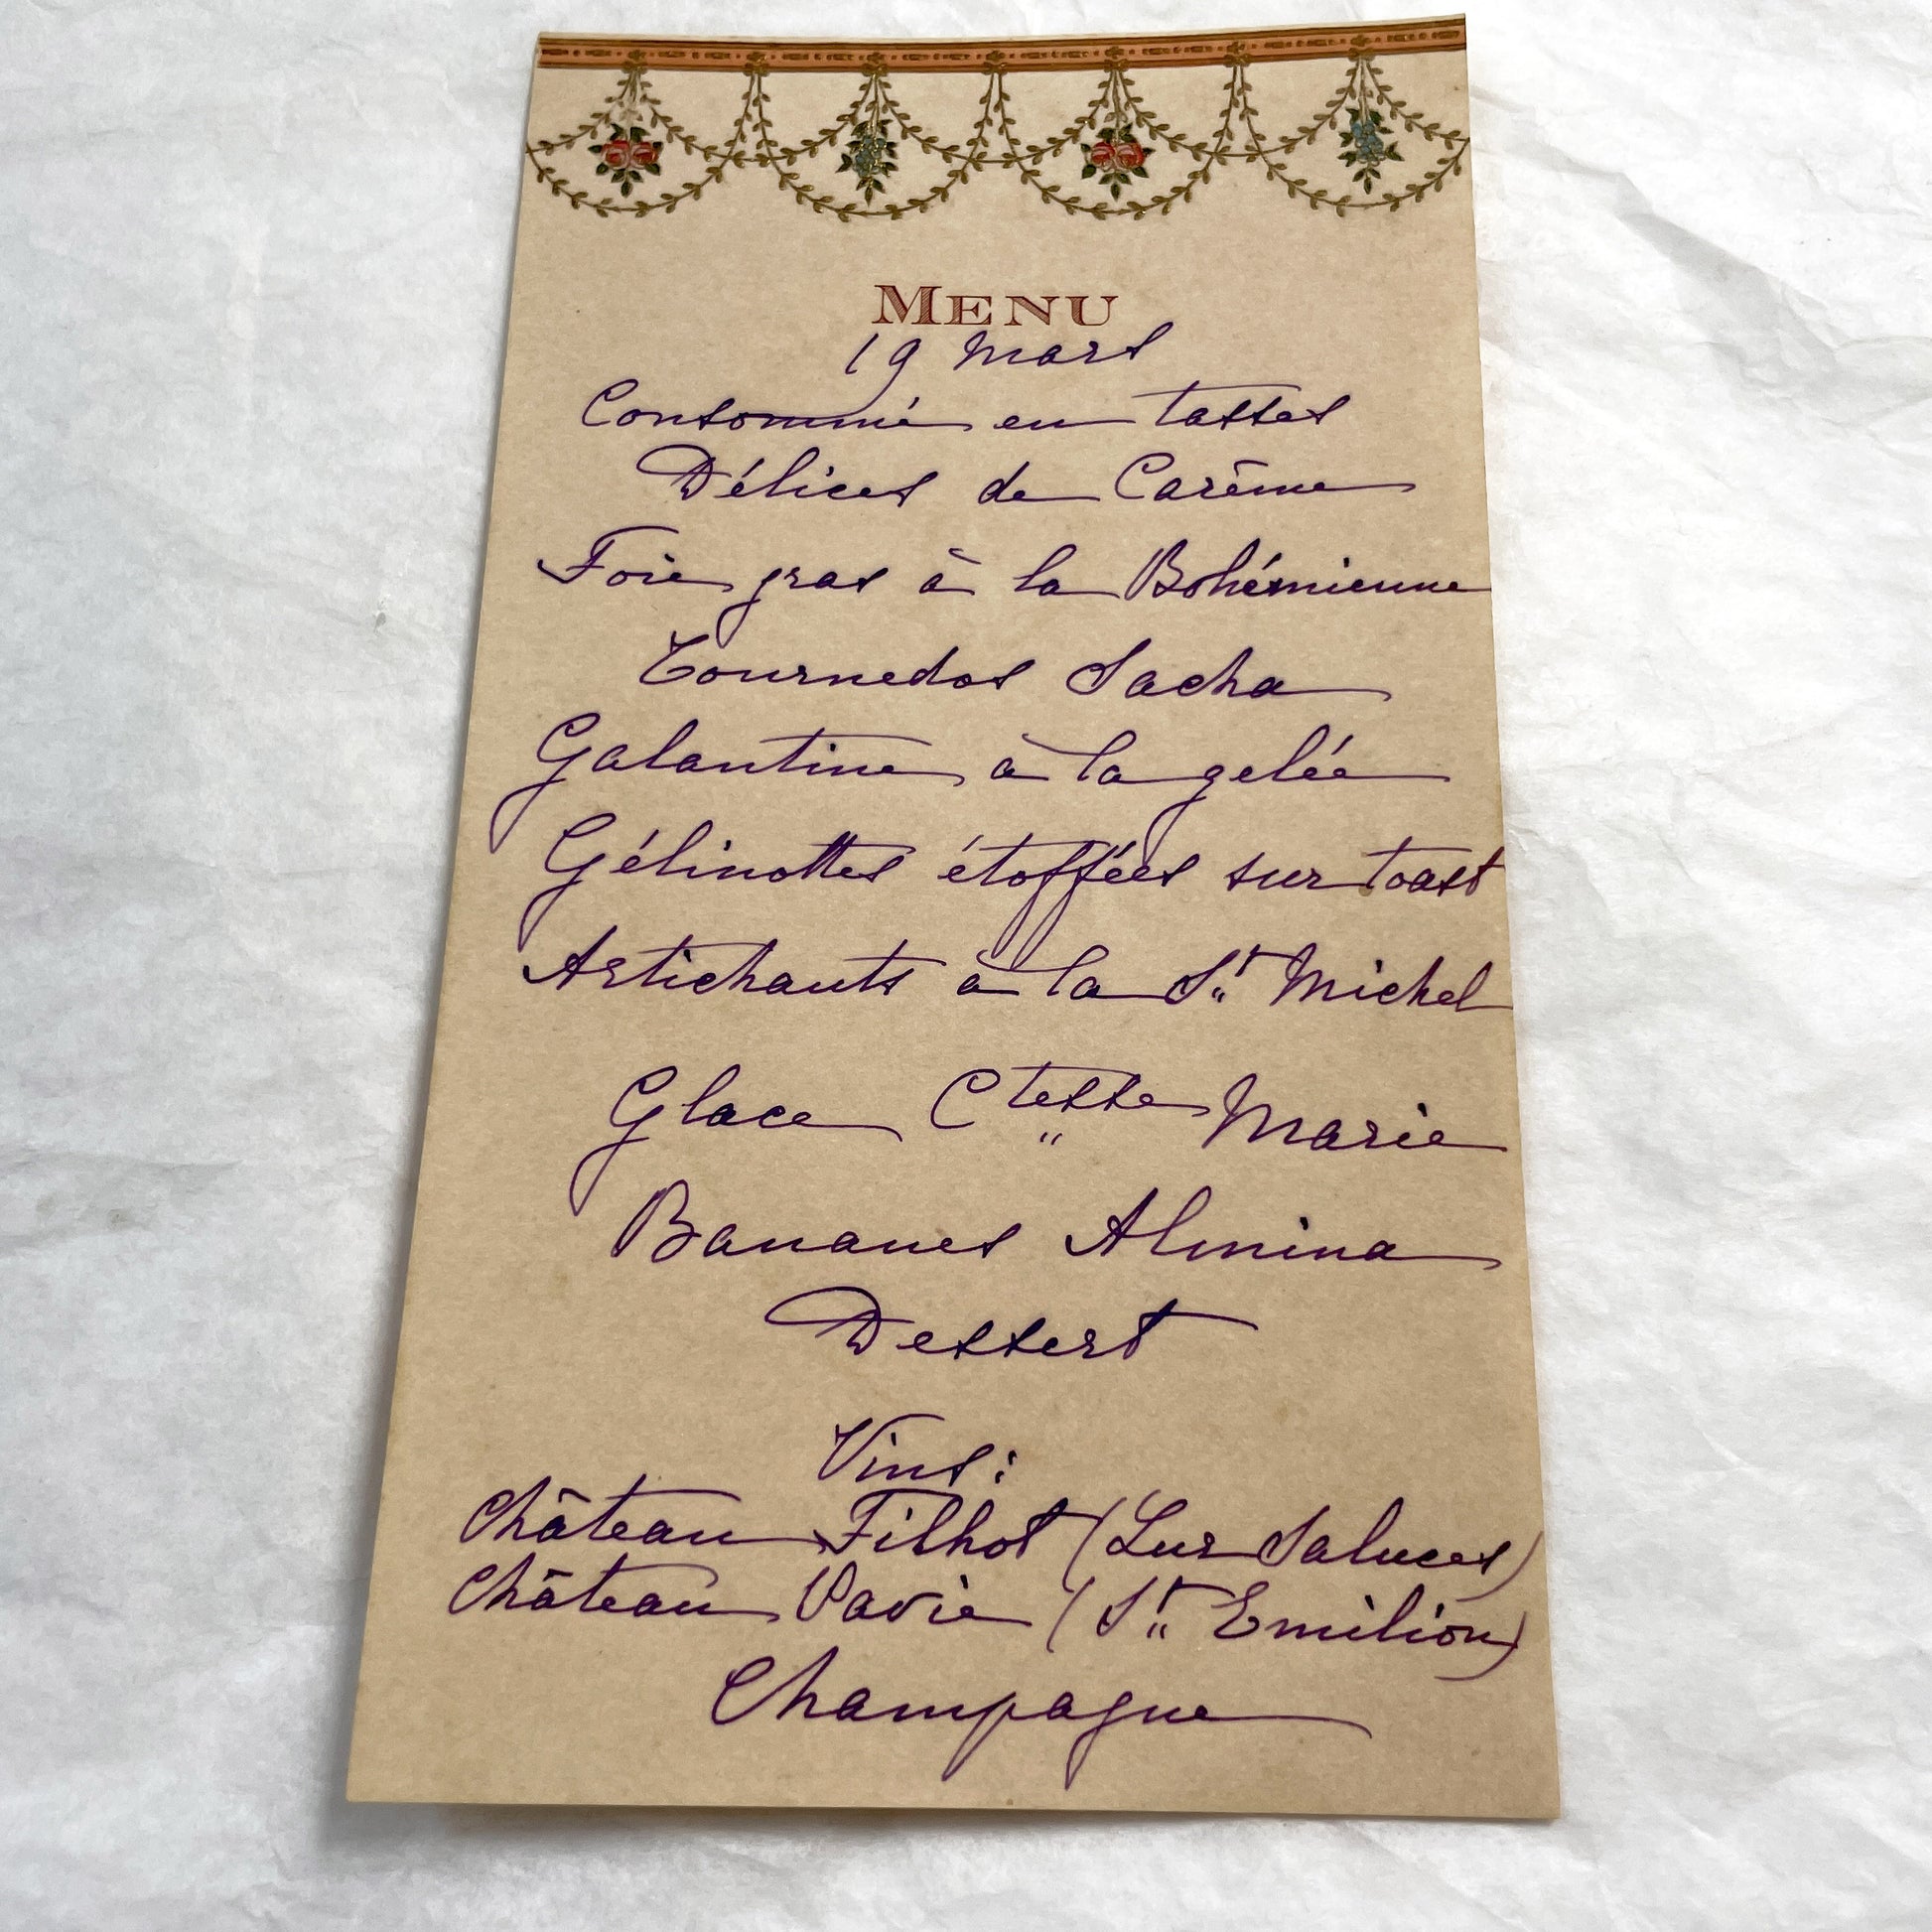 MENU
19 Mars
Consommé en tasses
Délices de Carême
Foie gras à la Bohémienne
Tournedos Sacha
Galantine à la gelée
Gélinottes étoffées sur toast
Artichauts à la St Michel
Glace Ctesse Marie
Bananes Almina
Dessert
Vins:
Château Filhot (Lur Saluces)
Château Pavie (St Emilion)
Champagne